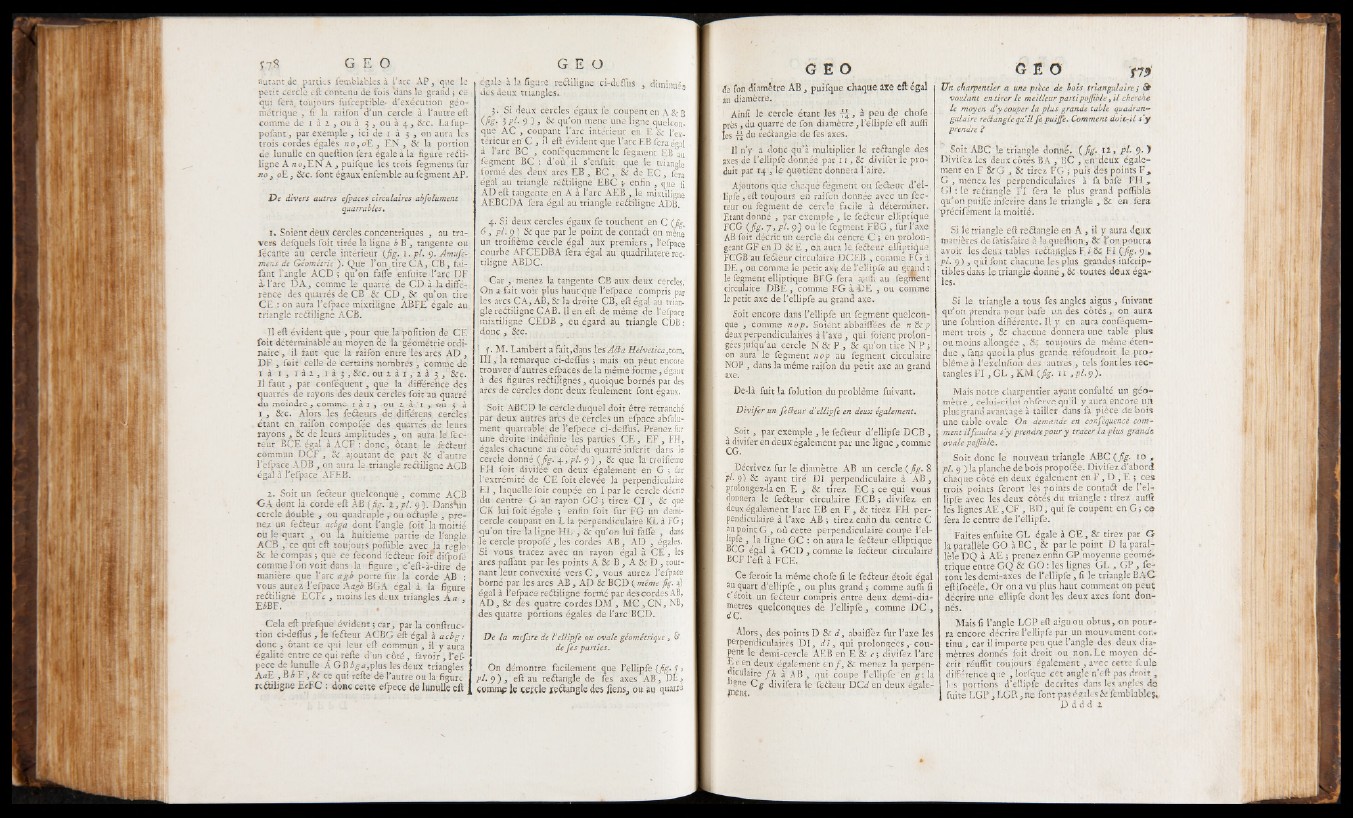 578 G E O
autant de parties semblables à l'arc AP, que le
petit cercle est contenu de fois dans le grand ; ce
qui sera toujours susceptible d'exécution géo-
métrique , si la raison d'un cercle à l'autre est
comme de 1 à 2 , ou à 3 , ou à 4 , &c. La sup-
posant , par exemple , ici de 1 à 3 , on aura les
trois cordes égales no, oE , EN , & la portion
de lunulle en question sera égale à la figure recti-
ligne A no, EN A , puisque les trois segmens sur
no , oE , &c. font égaux ensemble au segment AP.
De divers autres espaces circulaires absolument
quarrables.
1. Soient deux cercles concentriques , au tra-
vers desquels soit tirée la ligne B , tangente ou
sécante au cercle intérieur (fig. 1. pl. 9. Amuse-
mens de Géométrie ). Que l'on tire CA, CB, fai-
sant l'angle ACD ; qu'on fasse ensuite l'arc DF
à l'arc DA, comme le quarré de CD à la diffé-
rence des quarrés de CB & CD , & qu'on tire
CE : on aura l'espace mixtiligne ABFE égale au
triangle rectiligne ACB.
Il est évident que , pour que la position de CE
soit déterminable au moyen de la géométrie ordi-
naire , il faut que la raison entre les arcs AD ,
DF , soit celle de certains nombres , comme de
1 à 1 , 1 à 2 , 1 à 3 , &c. ou 2 à 1 , 2 à 3 , &c.
Il faut , par conséquent , que la différence des
quarrés de rayons des deux cercles soit au quarré
du moindre , comme 1 à 2 , ou 2 à 1 , ou 3 à
1 , &c. Alors les secteurs de différens cercles
étant en raison composée des quarrés de leurs
rayons , & de leurs amplitudes , on aura le sec-
teur BCE égal à ACF : donc, ôtant le secteur
commun DCF , & ajoutant de part & d'autre
l'espace ADB , on aura le triangle rectiligne ACB
égal à l'espace AFEB.
2. Soit un secteur quelconque , comme ACB
GA dont la corde est AB (fig. 2 , pl. 9 ). Dans un
cercle double , ou quadruple , ou octuple , pre-
nez un secteur acbga dont l'angle soit la moitié
ou le quart , ou la huitieme partie de l'angle
ACB , ce qui est toujours possible avec la regle
& le compas ; que ce second secteur soit disposé
comme l'on voit dans la figure , c'est-à-dire de
maniere que l'arc agb porte sur la corde AB :
vous aurez l'espace AagbBGA égal à la figure
rectiligne ECFc , moins les deux triangles Aa ,
EbBF.
Cela est presque évident ; car, par la construc-
tion ci-dessus , le secteur ACBG est égal à acbg :
donc , ôtant ce qui leur est commun , il y aura
égalité entre ce qui reste d'un côté, savoir , l'es-
pece de lunulle A G B bga, plus les deux triangles
AaE , B b F , & ce qui reste de l'autre ou la figure
rectiligne EcFC : donc cette espece de lunulle est
G E O
égale à la figure rectiligne ci-dessus , diminuée
des deux triangles.
3. Si deux cercles égaux se coupent en A & B
(fig. 3 pl. 9 ) , & qu'on mene une ligne quelcon-
que AC , coupant l'arc intérieur en E & l'ex-
térieur en C , il est évident que l'arc EB sera égal
à l'arc BC , conséquemment le segment EB au
segment BC : d'où il s'ensuit que le triangle
formé des deux arcs EB , BC , & de EC , sera
égal au triangle rectiligne EBC ; enfin , que si
AD est tangente en A à l'arc AEB , le mixtiligne
AEBCDA sera égal au triangle rectiligne ADB.
4. Si deux cercles égaux se touchent en C (fig.
6 , pl. 9 ) & que par le point de contact on mène
un troisième cercle égal aux premiers , l'espace
courbe AFCEDBA sera égal au quadrilatere rec-
tiligne ABDC.
Car , menez la tangente CB aux deux cercles.
On a fait voir plus haut que l'espace compris par
les arcs CA, AB, & la droite CB, est égal au trian-
gle rectiligne CAB. Il en est de même de l'espace
mixtiligne CEDB , eu égard au triangle CDB :
donc , &c.
5. M. Lambert a fait, dans les Acta Helvetica, tom.
III , la remarque ci-dessus ; mais on peut encore
trouver d'autres espaces de la même forme , égaux
à des figures rectilignes , quoique bornés par des
arcs de cercles dont deux seulement sont égaux.
Soit ABCD le cercle duquel doit être retranché
par deux autres arcs de cercles un espace absolu-
ment quarrable de l'espece ci-dessus. Prenez sur
une droite indéfinie les parties CE , EF , FH,
égales chacune au côté du quarré inscrit dans le
cercle donné ( fig. 4. pl. 9 ) , & que la troisieme
FH soit divisée en deux également en G ; sur
l'extrémité de CE soit élevée la perpendiculaire
EI , laquelle soit coupée en I par le cercle décrit
du centre G au rayon GC ; tirez CI , & que
CK lui soit égale ; enfin soit sur FG un demi-
cercle coupant en L la perpendiculaire KL à FG ;
qu'on tire la ligne HL , & qu'on lui fasse , dans
le cercle proposé , les cordes AB , AD , égales.
Si vous tracez avec un rayon égal à CE , les
arcs passant par les points A & B , A & D , tour-
nant leur convexité vers C , vous aurez l'espace
borné par les arcs AB , AD & BCD ( même fig. 4)
égal à l'espace rectiligne formé par des cordes AB,
AD , & des quatre cordes DM , MC , CN , NB,
des quatre portions égales de l'arc BCD.
De la mesure de l'ellipse ou ovale géométrique , &
de ses parties.
On démontre facilement que l'ellipse (fig. 5 ,
pl. 9 ) , est au rectangle de ses axes AB, DE ,
comme le cercle rectangle des siens, ou au quarré
G E O
de son diamètre AB , puisque chaque axe est égal
au diamètre.
Ainsi le cercle étant les 11/14 , à peu de chose
près , du quarré de son diamètre , l'ellipse est aussi
les 11/14 du rectangle de ses axes.
Il n'y a donc qu'à multiplier le rectangle des
axes de l'ellipse donnée par 11 , & diviser le pro-
duit par 14 ; le quotient donnera l'aire.
Ajoutons que chaque segment ou secteur d'el-
lipse , est toujours en raison donnée avec un sec-
teur ou segment de cercle facile à déterminer.
Etant donné , par exemple , le secteur elliptique
FCG (fig. 7 , pl. 9 ) ou le segment FBG , sur l'axe
AB soit décrit un cercle du centre C ; en prolon-
geant GF en D & E , on aura le secteur elliptique
FCGB au secteur circulaire DCEB , comme FG à
DE , ou comme le petit axe de l'ellipse au grand :
le segment elliptique BFG sera aussi au segment
circulaire DBE , comme FG à DE , ou comme
le petit axe de l'ellipse au grand axe.
Soit encore dans l'ellipse un segment quelcon-
que , comme nop. Soient abbaissées de n & p
deux perpendiculaires à l'axe , qui soient prolon-
gées jusqu'au cercle N & P , & qu'on tire NP ;
on aura le segment nop au segment circulaire
NOP , dans la même raison du petit axe au grand
axe.
De-là suit la solution du problême suivant.
Diviser un secteur d'ellipse en deux également.
Soit , par exemple , le secteur d'ellipse DCB ,
à diviser en deux également par une ligne , comme
CG.
Décrivez sur le diamètre AB un cercle ( fig. 8
pl. 9) & ayant tiré DI perpendiculaire à AB ,
prolongez-la en E , & tirez EC ; ce qui vous
donnera le secteur circulaire ECB ; divisez en
deux également l'arc EB en F , & tirez FH per-
pendiculaire à l'axe AB ; tirez enfin du centre C
au point G , où cette perpendiculaire coupe l'el-
lipse , la ligne GC : on aura le secteur elliptique
BCG égal à GCD , comme le secteur circulaire
BCF l'est à FCE.
Ce seroit la même chose si le secteur étoit égal
au quart d'ellipse , ou plus grand ; comme aussi si
c'étoit un secteur compris entre deux demi-dia-
mètres quelconques de l'ellipse , comme DC ,
dC.
Alors, des points D & d, abaissez sur l'axe les
perpendiculaires DI , di , qui prolongées , cou-
pent le demi-cercle AEB en E & e ; divisez l'arc
Ee en deux également en f, & menez la perpen-
diculaire fh à AB , qui coupe l'ellipse en g : la
ligne Cg divisera le secteur DCd en deux égale-
mens.
G E O 579
Un charpentier a une pièce de bois triangulaire ; &
voulant en tirer le meilleur parti possible , il cherche
le moyen d'y couper la plus grande table quadran-
gulaire rectangle qu'il se puisse. Comment doit-il s'y
prendre ?
Soit ABC le triangle donné. (fig. 12 , pl. 9. )
Divisez les deux côtés BA , BC , en deux égale-
ment en F & G , & tirez FG ; puis des points F ,
G , menez les perpendiculaires à la base FH ,
GI : le rectangle FI sera le plus grand possible
qu'on puisse inscrire dans le triangle , & en sera
précisément la moitié.
Si le triangle est rectangle en A , il y aura deux
manières de satisfaire à la question, & l'on pourra
avoir les deux tables rectangles F & Fi (fig. 9 ,
pl. 9) , qui sont chacune les plus grandes inscrip-
tibles dans le triangle donné , & toutes deux éga-
les.
Si le triangle a tous ses angles aigus , suivant
qu'on prendra pour base un des côtés , on aura
une solution différente. Il y en aura conséquem-
ment trois , & chacune donnera une table plus
ou moins allongée , & toujours de même éten-
due , sans quoi la plus grande résoudroit le pro-
blême à l'exclusion des autres , tels sont les rec-
tangles FI , GL , KM (fig. 11 , pl. 9).
Mais notre charpentier ayant consulté un géo-
mètre , celui-ci lui observe qu'il y aura encore un
plus grand avantage à tailler dans sa pièce de bois
une table ovale. On demande en conséquence com-
ment il faudra s'y prendre pour y tracer la plus grande
ovale possible.
Soit donc le nouveau triangle ABC (fig. 10 ,
pl. 9 ) la planche de bois proposée. Divisez d'abord
chaque côté en deux également en F , D , E ; ces
trois points seront les points de contact de l'el-
lipse avec les deux côtés du triangle : tirez aussi
les lignes AE , CF , BD , qui se coupent en G ; ce
sera le centre de l'ellipse.
Faites ensuite GL égale à GE , & tirez par G
la parallèle GO à BC , & par le point D la paral-
lèle DQ à AE ; prenez enfin GP moyenne géomé-
trique entre GQ & GO : les lignes GL , GP , se-
ront les demi-axes de l'ellipse , si le triangle BAC
est isocèle. Or on a vu plus haut comment on peut
décrire une ellipse dont les deux axes sont don-
nés.
Mais si l'angle LGP est aigu ou obtus, on pour-
ra encore décrire l'ellipse par un mouvement con-
tinu , car il importe peu que l'angle des deux dia-
mètres donnés soit droit ou non. Le moyen dé-
crit réussit toujours également , avec cette seule
différence que , lorsque cet angle n'est pas droit ,
les portions d'ellipse décrites dans les angles de
suite LGP , LGR , ne sont pas égales & semblables.
D d d d 2